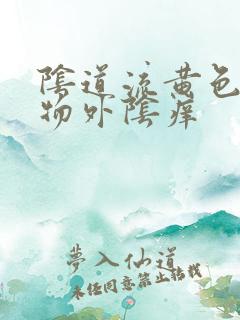 陰道流黄色
物外陰痒
夢入仙道
未经同意禁止转载